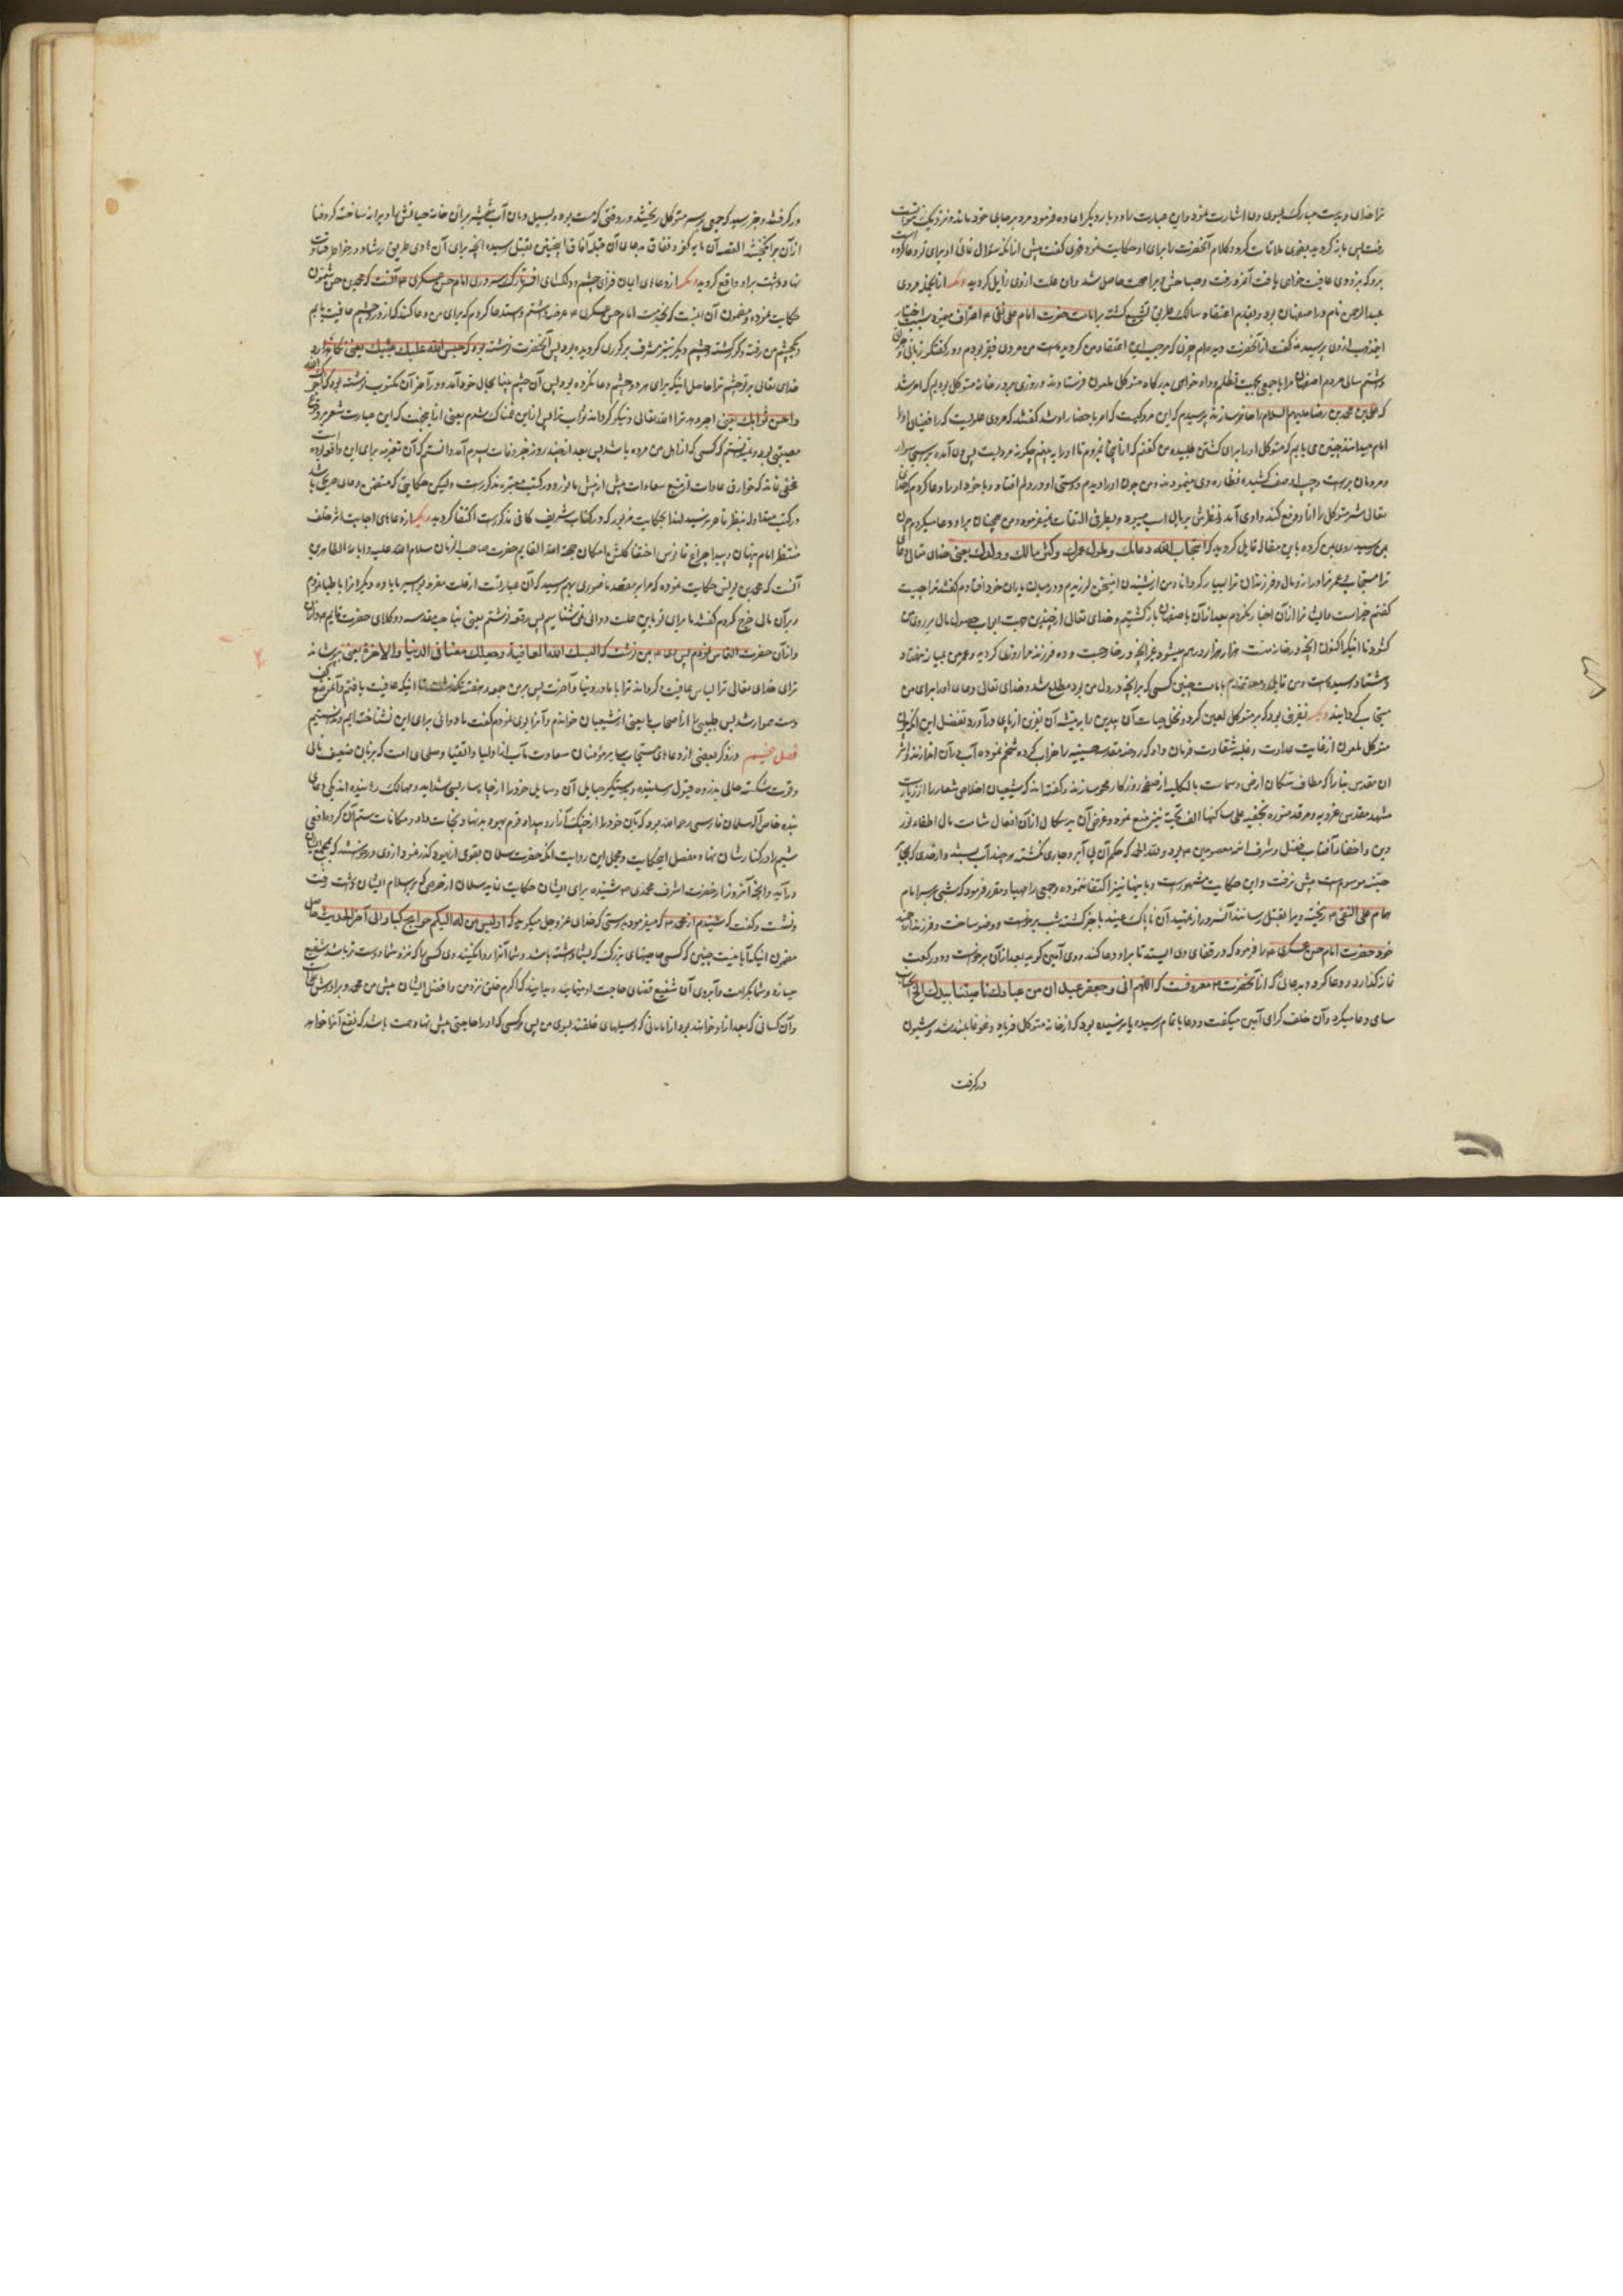 ترا خدای و بدست مبارک بسوی وی اشارت نمود و این عبارت را دو بار دیگر اعاده فرمود مرد بر جای خود ماند و نزدیک
رفت پس باز گردید بفهری ملاقات کرد و کلام آنحضرت را برای او حکایت نمود فهری گفت پیش از آنکه سؤال نمائی او برای تو دعا کرده
برو که بزودی عافیت خواهی یافت آنمرد رفت و صباحش ویرا صحت حاصل شد و آن علت از وی زایل گردید دیگر از آنجمله مردی
عبد الرحمن نام در اصفهان بود و بقدم اعتقاد سالک طریق تشیع گشته بر امامت حضرت امام علی نقی اعتراف مینمود سبب اختیار
از وی پرسیدند گفت از آنحضرت دیده‌ام چیزی که موجب این اعتقاد من گردیده است من مردی فقیر بودم و در گفتگو زبانی و جرأتی
داشتم سالی مردم اصفهان مرا با جمعی بجهت تظلم و داد خواهی بدرگاه متوکل ملعون فرستادند و روزی بر در خانه متوکل بودیم که امر شد
که علی بن محمد بن رضا علیهم السلام را حاضر سازند پرسیدم که این مرد کیست که امر باحضار او شد گفتند که مردی علویست که رافضیان او را
امام میدانند چنین می یابم که متوکل او را برای کشتن طلبیده من گفتم که از اینجا نمیروم تا او را به بینم چگونه مردیست پس آن آمده بر اسبی سوار
و مردمان بر راست و چپ او صف کشیده نظاره وی مینمودند و من چون او را دیدم دوستی او در دلم افتاد و با خود او را دعا کردم که خدای
تعالی شر متوکل را از او دفع کند و او می آمد و نظرش بر یال اسب میبود و بطرفی التفات نمیفرمود و من همچنان بر او دعا میکردم چون
بمن رسید روی بمن کرده باین مقال قایل گردید که استجاب الله دعائک و طول عمرک و کثر مالک و ولدک یعنی خدای تعالی دعای
ترا مستجاب و عمر ترا دراز و مال و فرزندان ترا بسیار گرداند و من از شنیدن این سخن لرزیدم و در میان یاران خود افتادم گفتند ترا چیست
گفتم خیر است و ایشانرا از آن اخبار نکردم بعد از آن باصفهان باز گشتیم و خدای تعالی از چندین جهت ابواب حصول مال بر روی من
کشود تا اینکه اکنون آنچه در خانه منست هزار هزار درهم میشود غیر آنچه در خارجست و ده فرزند مرا روزی گردیده و عمر من بمیانه هفتاد
و هشتاد رسیده است و من قایل و معتقدم بامامت چنین کسی که بر آنچه در دل من بود مطلع شد و خدای تعالی دعای او را برای من
مستجاب گردانید دیگر نفرینی بود که بر متوکل لعین کرد و نخل حیات آن بیدین را به تیشه آن نفرین از پای در آورد تفصیل این اجمال
متوکل ملعون از غایت عداوت و غلبه شقاوت فرمان داد که روضه مقدسه حسینیه را خراب کرده شخم نموده آب در آن اندازند و اثر
آن مقدس بنا را که مطاف سکان ارض و سماست بالکلیه از صفحه روزگار محو سازند و گفته‌اند که شیعیان اخلاص شعار را از زیارت
مشهد مقدس غرویه و مرقد منوره نجفیه علی ساکنها الف تحیة نیز منع نمود و غرض آن بدسگال از آن افعال شامت مآل اطفاء نور
دین و اخفاء آفتاب فضل و شرف ائمه معصومین بود و لله الحمد که حکم آن بی آبرو جاری نگشته هر چند آب بستند و از حدی که بجا
جنبه موسوم است پیش نرفت و این حکایت مشهور است و باینها نیز اکتفا ننموده و جمعی را مهیا و مقرر فرمود که شبی بر سر امام
همام علی النقی ریخته ویرا بقتل رسانند آنسرور از تمهید آن ناپاک عنید با خبر گشت شب برخواست و وضو ساخت و فرزند ارجمند
خود حضرت امام حسن عسکری را فرمود که در قفای وی ایستد تا بر او دعا کند و وی آمین گوید بعد از آن برخواست و دو رکعت
نماز گذارد و دعا کرد و بدعائی که از آنحضرت معروفست که اللهم انی و جعفر عبدان من عبادک نواصینا بیدک الخ آنجناب
سامی دعا میکرد و آن خلف گرامی آمین میگفت و دعا باتمام رسیده یا نرسیده بود که از خانه متوکل فریاد و غوغا بلند شد و شیون
درگرفت
در گرفت و خبر رسید که جمعی بر سر متوکل ریختند و در وقتی که مست بوده و بسیل دمان آب شمشیر بران خانه حیاتش را ویرانه ساخته گرد فنا
از آن برانگیختند القصه آن مایه کفر و نفاق بدعای آن قبله آفاق اینچنین بقتل رسید و آنچه برای آن هادی طریق رشاد در خواطر شقاوت
نهاد داشت بر او واقع گردید دیگر از دعاهای ایمان فزای چشم و دلگشای سروری امام حسن عسکری آنست که محمد بن حسن شمون
حکایت نموده و مضمون آن اینست که بخدمت امام حسن عسکری عرضه داشتم و استدعا کردم که برای من دعا کند که از درد چشم عافیت یابم
و یکچشم من رفته و کور گشته و چشم دیگر نیز مشرف بر کوری گردیده بود پس آنحضرت نوشته بود که حبس الله علیک عینیک یعنی نگاهدارد
خدای تعالی بر تو چشم ترا حاصل اینکه برای هر دو چشم دعا نکرده بود پس آن چشم بینا بحال خود آمد و در آخر آن مکتوب نوشته بود که آجرک الله
و احسن ثوابک یعنی اجر دهد ترا الله تعالی و نیکو گرداند ثواب ترا پس از این غمناک شدم یعنی از اینجهت که این عبارت مشعر بر وقوع
مصیبتی بود و نمیدانستم که کسی که از اهل من مرده باشد پس بعد از چند روز خبر وفات پسرم آمد و دانستم که آن تعزیه برای این واقعه بوده است
مخفی نماند که خوارق عادات از منبع سعادات بیش از پیش ماثور و در کتب معتبره مذکور است ولیکن حکایتی که متضمن دعای صریحی باشد
در کتب متداوله بنظر قاصر نرسید لهذا بحکایت مزبور که در کتاب شریف کافی مذکور است اکتفا گردید دیگر از دعاهای اجابت اثر خلف
منتظر امام پنهان و پیدا چراغ فانوس اختفا گلشن امکان حجة الله القایم حضرت صاحب الزمان سلام الله علیه و آبائه الطاهرین
آنست که محمد بن یونس حکایت نموده که مرا بر مقعد ناصوری بهم رسید که آن عبارتست از علت مفرط بواسیر یا باده دیگر آنرا باطبا نمودم
و بر آن مالی خرج کردم گفتند ما برای تو باین علت دوائی نمی شناسیم پس رقعه نوشتم یعنی بناحیه مقدسه و وکلای حضرت قایم دادم
و از آن حضرت التماس نمودم پس بمن نوشت که البسک الله العافیة و جعلک معنا فی الدنیا و الاخرة یعنی بپوشاند
ترا خدای تعالی ترا لباس عافیت و گرداند ترا با ما در دنیا و آخرت پس بر من جمعه و هفته نگذشت تا اینکه عافیت یافتم و آنموضع
دست هموار شد پس طبیبی را از اصحاب ما یعنی از شیعیان خواندم و آنرا بوی نمودم گفت ما دوائی برای این نشناخته ایم و ندانستیم
فصل ششم در ذکر بعضی از دعاهای مستجاب سایر مؤمنان سعادت مآب از اولیا و اتقیا و صلحای امت که بزبان ضعیف نالی
و قوت شکسته حالی بذروه قبول رسانیده و بدستگیر حبایل آن وسایل خود را از خبایس ارایس شداید و مهالک رهانیده اند یکی دعای
بنده خاص اله سلمان فارسی رحمه الله بود که بآن خود را از چنگ آزار و بیداد قوم یهود بدنهاد نجات داد و مکافات ستم آن گروه افعی
شیم را در کنار شان نهاد و مفصل این حکایت و مجمل این روایت آنکه حضرت سلمان بقومی از یهود گذر نمود از وی درخواستند که بمجمع ایشان
در آید و آنچه آنروز از حضرت اشرف محمدی شنیده برای ایشان حکایت نماید سلمان از حرصی که بر اسلام ایشان داشت رفت
و نشست و گفت که شنیدم از محمد که میفرمود بدرستی که خدای عزوجل میگوید که اولیس من له الیکم حوایج کبار الی آخر الحدیث حاصل
مضمون اینکه آیا نیست چنین که کسی حاجتهای بزرگ که بشما داشته باشد و شما آنرا روا نکنید و وی کسی را که نزد شما دوست تر باشد شفیع
میسازد و شما بکرامت و آبروی آن شفیع قضای حاجت او مینمائید بدانید که اکرم خلق نزد من و افضل ایشان پیش من محمد و برادرش علی است
و آن کسانی که بعد از او خواهند بود از امامانی که وسیلهای خلقند بسوی من پس هر کسی که او را حاجتی پیش نهاد همت باشد که نفع آنرا خواهد